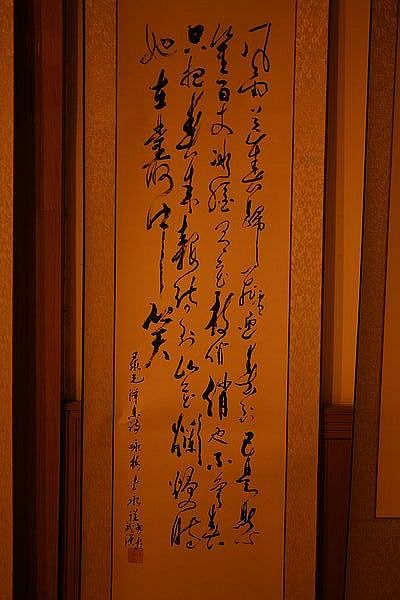 風雨送春歸飛雪迎春到已是懸
崖百丈冰猶有花枝俏俏也不爭春
只把春來報待到山花爛漫時
她在叢中笑
錄毛澤東詞詠梅